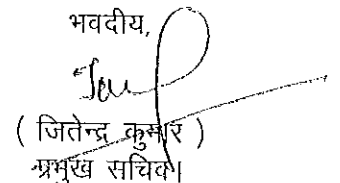 भवदीय,
( जितेन्द्र कुमार )
प्रमुख सचिव।